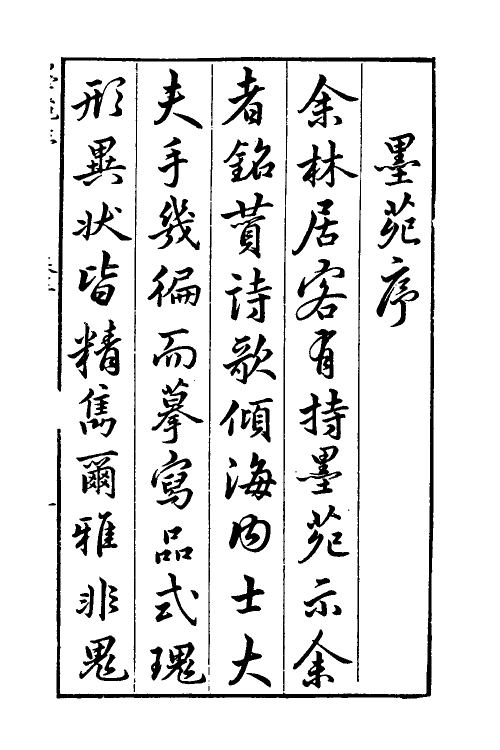 墨苑序
余林居客有持墨苑示余
者銘贊詩歌傾海内士大
夫手幾徧而摹寫品式瑰
形異狀皆精雋爾雅非鬼